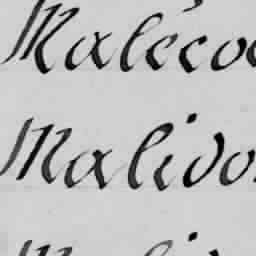 Maléco
Malido